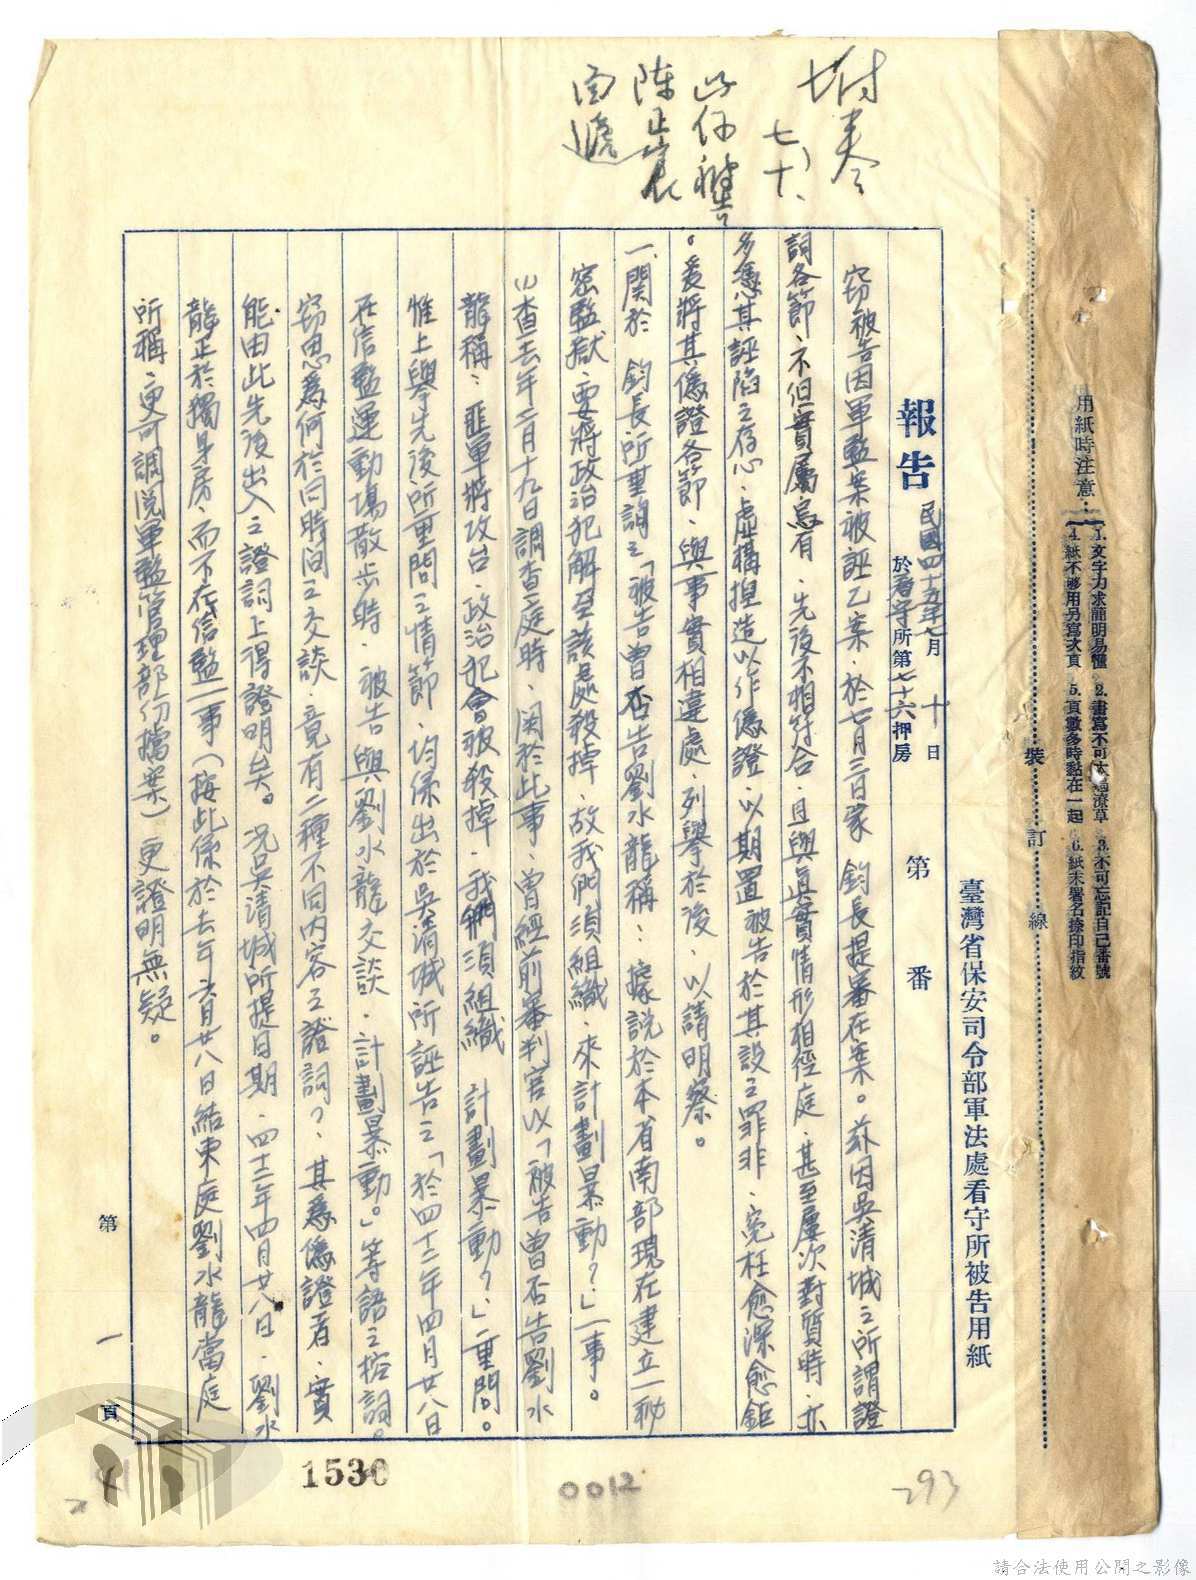 用紙時注意：
1. 文字力求簡明易懂 2. 書寫不可太過潦草 3. 不可忘記自己番號
4. 紙不够用另寫次頁 5. 頁數多時黏在一起 6. 紙末署名捺印指紋
裝訂線
臺灣省保安司令部軍法處看守所被告用紙
報告 民國四十五年七月十日
於看守所第七十六押房
第 番
附卷
七、十、
陳
竊被告因軍監案被誣乙案，於七月三日蒙 鈞長提審在案。茲因吳清城之所謂證
詞各節，不但實屬烏有，先後不相符合，且與真實情形相徑庭，甚至屢次對質時，亦
多憑其誣陷之存心，虛構捏造以作偽證，以期置被告於其設之罪非，寃枉愈深愈鉅
。爰將其偽證各節，與事實相違處，列舉於後，以請明察。
一、關於 鈞長所重詢之「被告曾否告劉水龍稱：據説於本省南部現在建立一秘
密監獄，要將政治犯解至該處殺掉，故我們須組織，來計劃暴動？」一事。
(1)查去年二月十九日調查庭時，関於此事，曾經前審判官以「被告曾否告劉水
龍稱：匪軍將攻台，政治犯會被殺掉，我們須組織 計劃暴動？」一重問。
惟上舉先後所重問之情節，均係出於吳清城所誣告之「於四十二年四月廿八日
在信監運動場散步時，被告與劉水龍交談，計劃暴動。」等語之控詞。
竊思為何於同時间之交談，竟有二種不同内容之證詞？，其為偽證者，實
能由此先後出入之證詞上得證明矣。況吳清城所提日期，四十二年四月廿八日，劉水
龍正於獨身房，而不在信監一事（按此係於去年六月廿八日結束庭劉水龍當庭
所稱，更可調閲軍監管理部份檔案）更證明無疑。
第一頁
1530
0012
293
請合法使用公開之影像